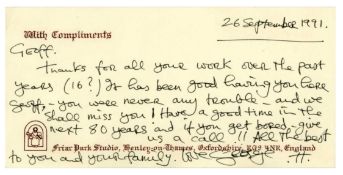 26 September 1991.
With Compliments
Geoff.
Thanks for all your work over the past
years (16?) It has been good having you here
Geoff, - you were never any trouble - and we
shall miss you! Have a good time in the
next 80 years and if you get bored - give
us a call!! All the best
Friar Park Studio, Henley-on-Thames, Oxfordshire, RG9 4NR, England
to you and your family. Love George